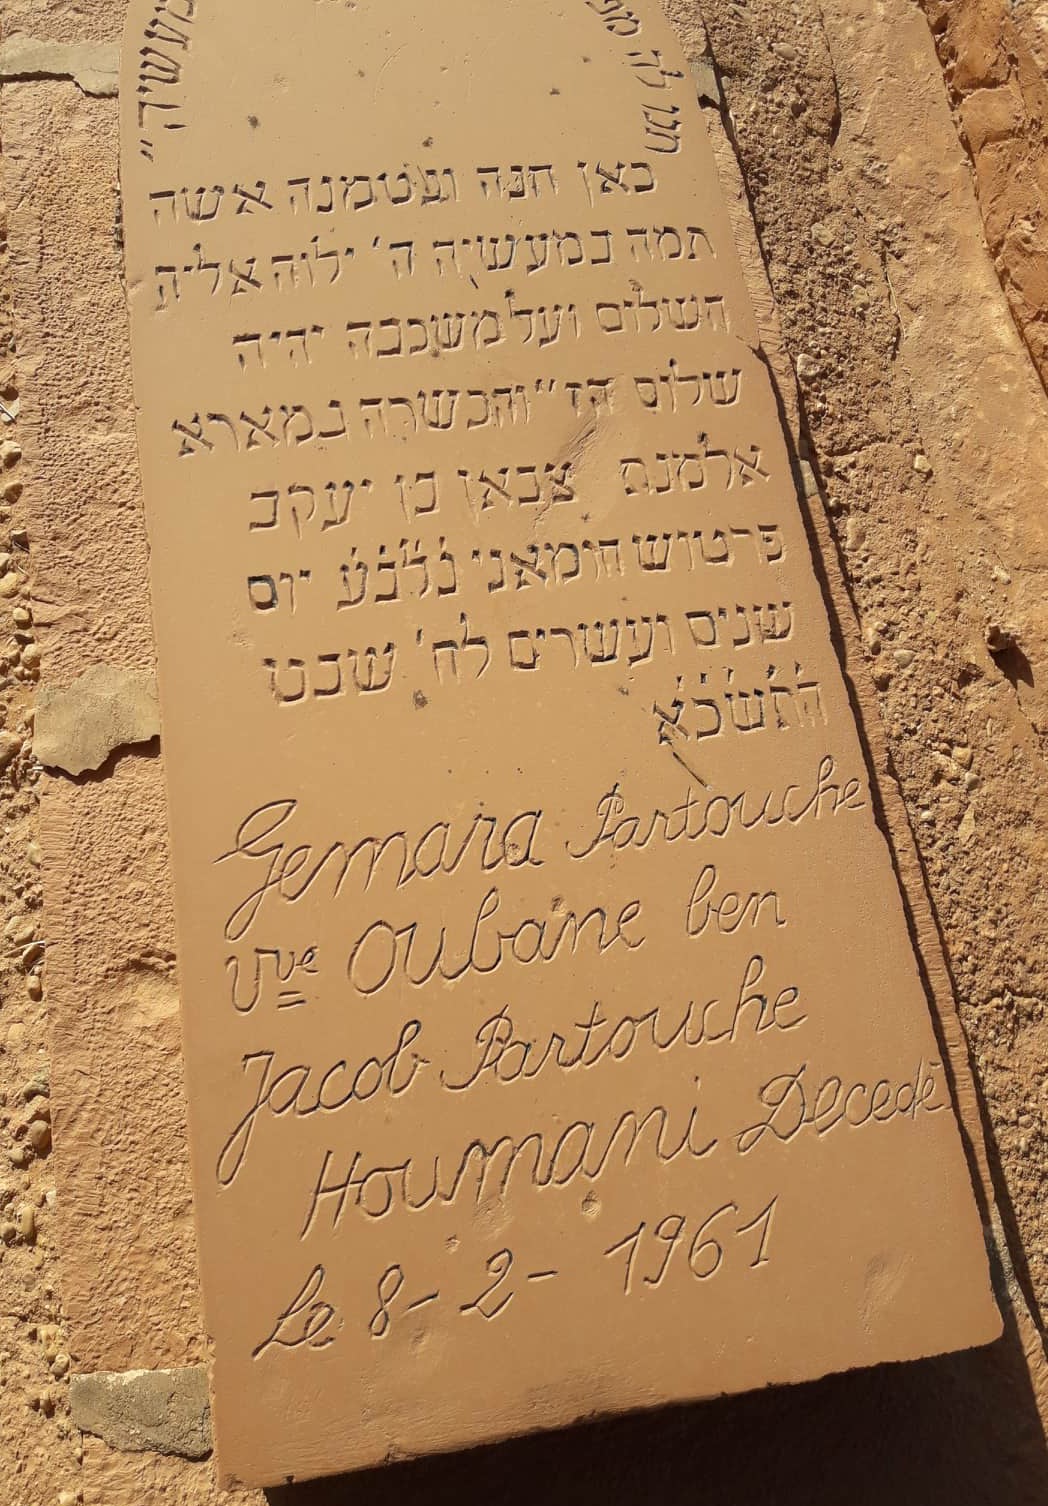 תנו לה מפ
מעשיה״
כאן חנה ועטמנה אשה
תמה במעשיה ה׳ ילוה אליה
השלום ועל משכבה יהיה
שלום הז״והכשרה במארא
אלמנת צבאן בן יעקב
פרטוש חומאני נלבע יום
שנים ועשרים לח׳ שבט
התשכא
Gemara Partouche
Vve Oubane ben
Jacob Partouche
Houmani Decedé
Le 8-2-1961